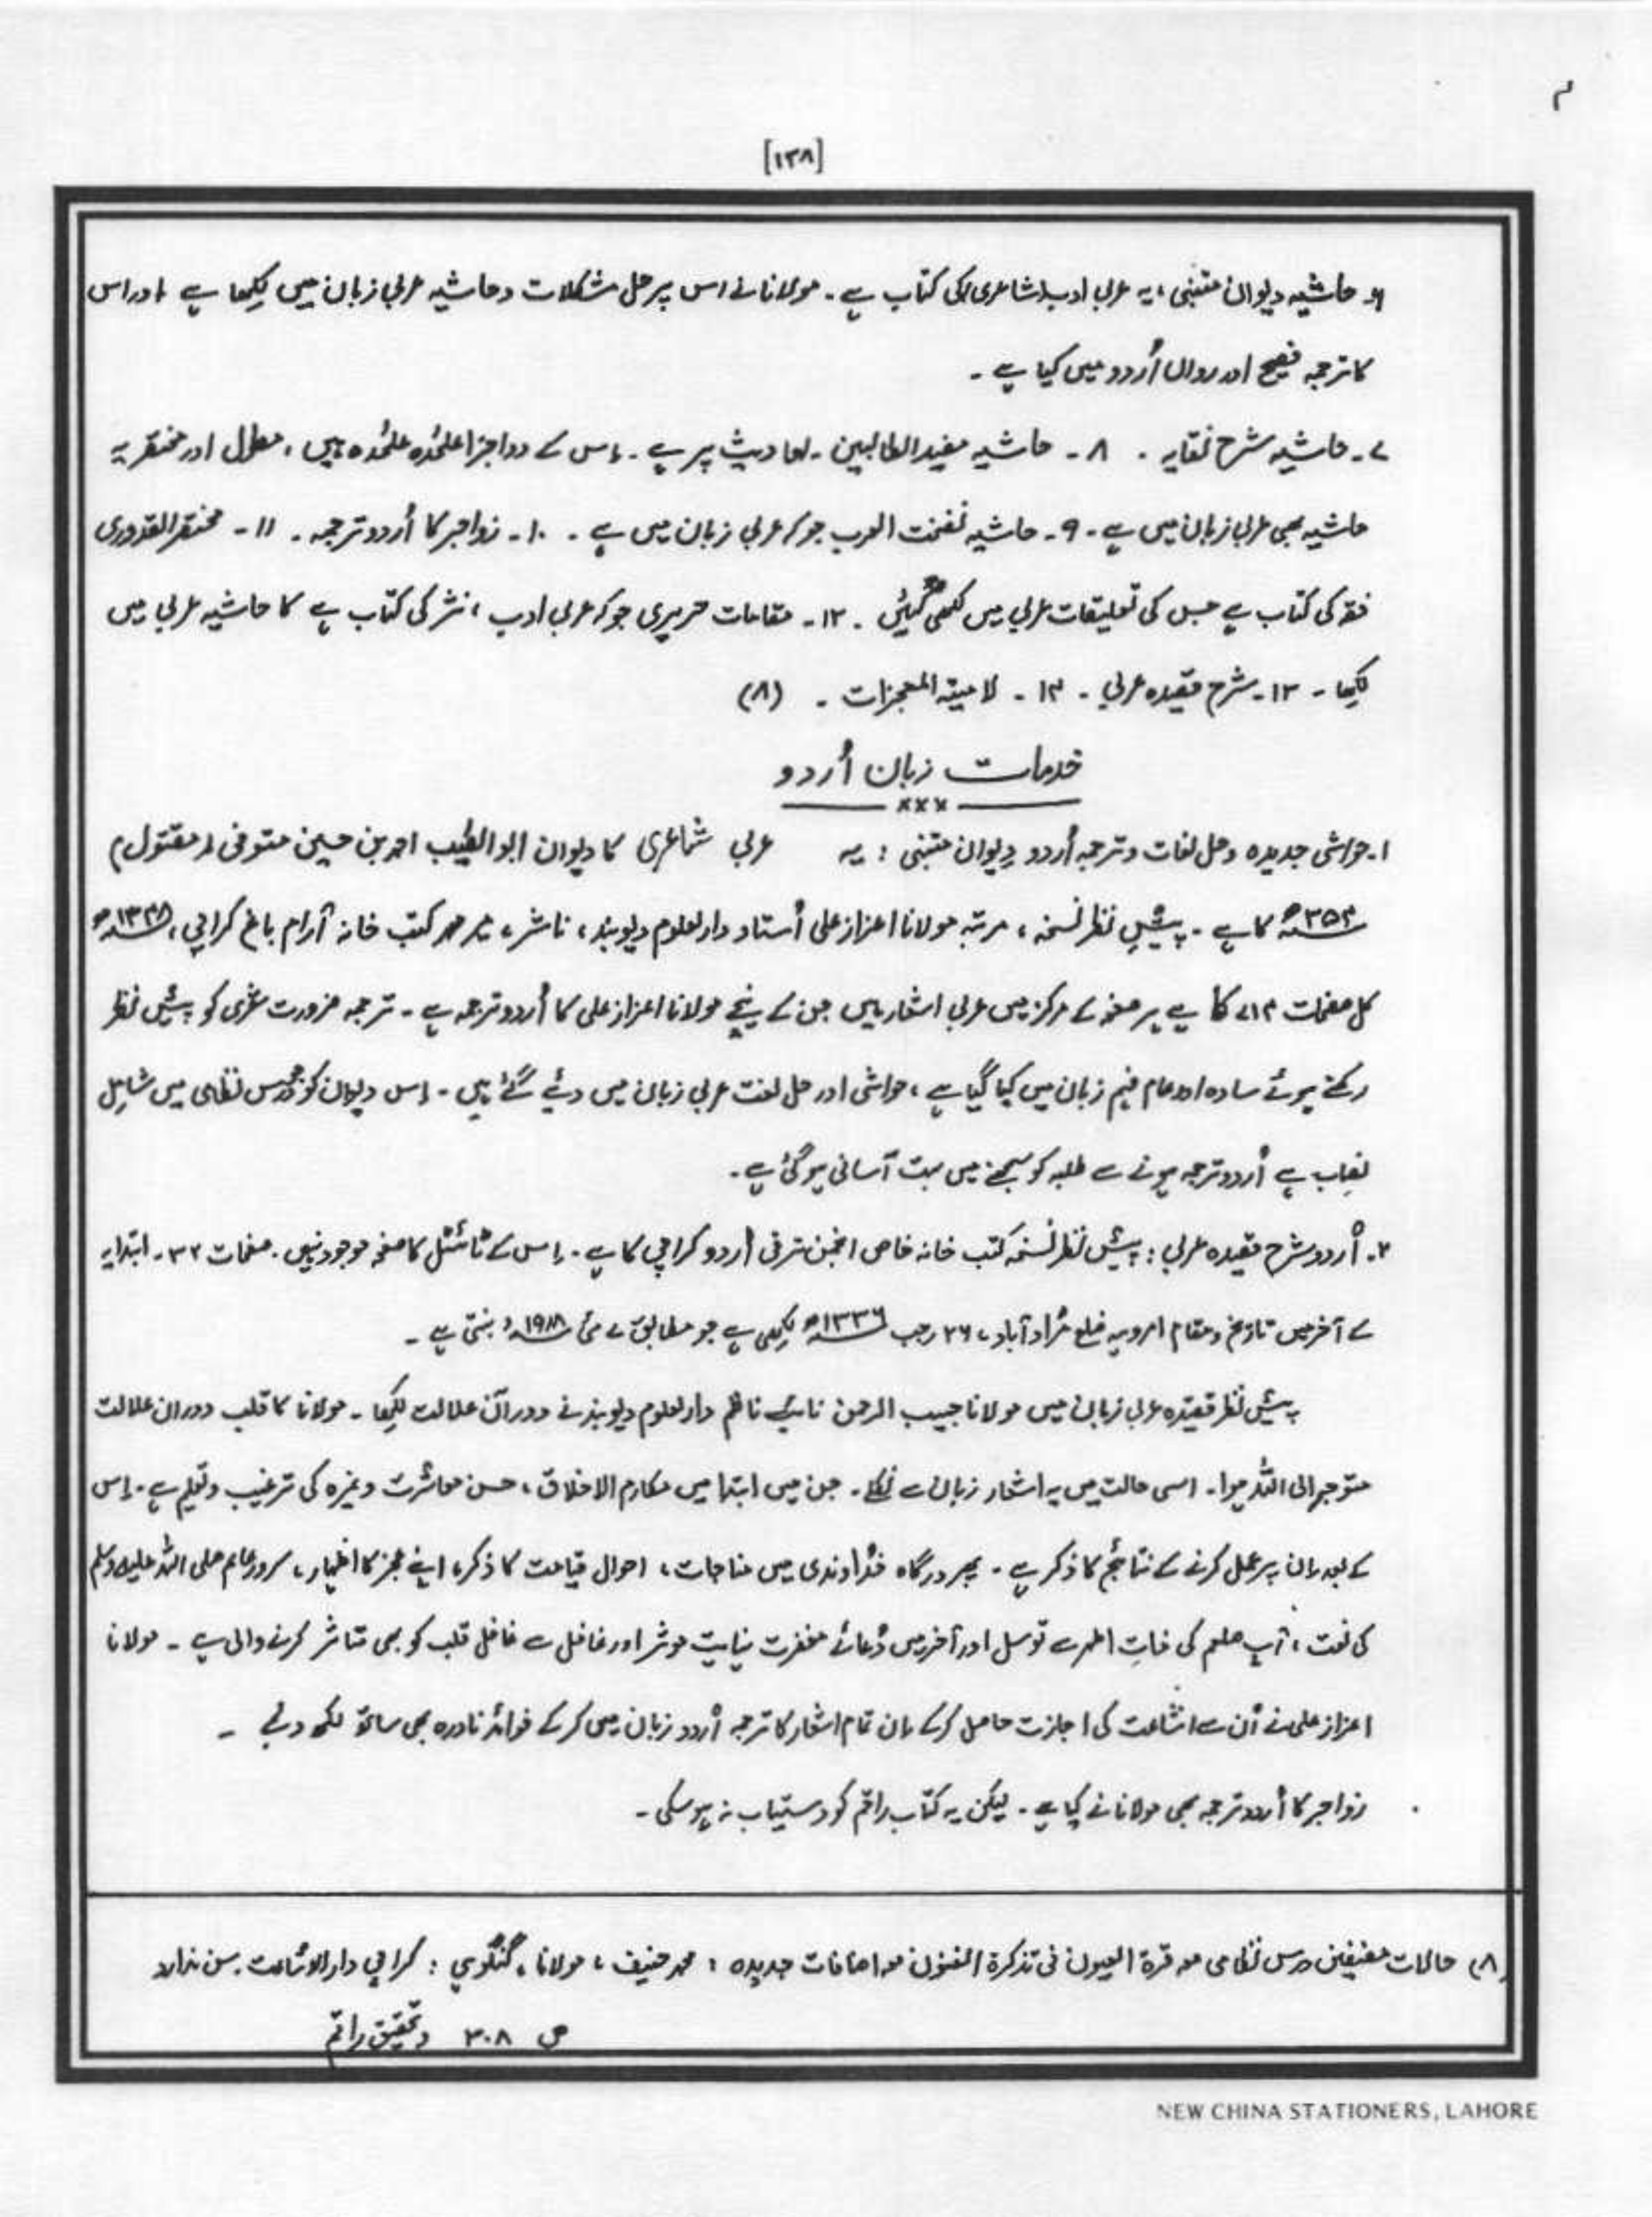 م
[۱۳۸]
۶۔ حاشیہ دیوان متنبی، یہ عربی ادب (شاعری) کی کتاب ہے۔ مولانا نے اس پر حل مشکلات و حاشیہ عربی زبان میں لکھا ہے اور اس
کا ترجمہ فصیح اور رواں اُردو میں کیا ہے۔
۷۔ حاشیہ شرح نقایہ ۔ ۸۔ حاشیہ مفید الطالبین۔ احادیث پر ہے۔ اِس کے دو اجزا علٰحدہ علٰحدہ ہیں، مطول اور مختصر یہ
حاشیہ بھی عربی زبان میں ہے۔ ۹۔ حاشیہ نفحۃ العرب جو کہ عربی زبان میں ہے ۔ ۱۰۔ زواجر کا اُردو ترجمہ ۔ ۱۱۔ مختصر القدوری
فقہ کی کتاب ہے جس کی تعلیقات عربی میں لکھی گئیں ۔ ۱۲۔ مقامات حریری جو کہ عربی ادب، نثر کی کتاب ہے کا حاشیہ عربی میں
لکھا ۔ ۱۳۔ شرح قصیدہ عربی ۔ ۱۴۔ لامیتہ المعجزات ۔ (۸)
خدمات زبان اُردو
×××
۱۔ حواشی جدیدہ و حل لغات و ترجمہ اُردو دِیوان متنبی : یہ عربی شاعری کا دیوان ابو الطیب احمد بن حسین متوفی (مقتول)
۳۵۴ھ کا ہے ۔ پیشِ نظر نسخہ، مرتبہ مولانا اعزاز علی اُستاد دارلعلوم دیوبند، ناشر، میر محمد کتب خانہ آرام باغ کراچی، ۱۳۴۸ھ
کل صفحات ۷۱۴ کا ہے ہر صفحہ کے مرکز میں عربی اشعار ہیں جن کے نیچے مولانا اعزاز علی کا اُردو ترجمہ ہے ۔ ترجمہ ضرورت شعری کو پیشِ نظر
رکھتے ہوئے سادہ اور عام فہم زبان میں کیا گیا ہے، حواشی اور حل لغت عربی زبان میں دیئے گئے ہیں ۔ اِس دیوان کو جو درس نظامی میں شاملِ
نصاب ہے اُردو ترجمہ ہونے سے طلبہ کو سمجھنے میں بہت آسانی ہو گئی ہے۔
۲۔ اُردو شرح قصیدہ عربی : پیشِ نظر نسخہ کتب خانہ خاص انجمن ترقی اُردو کراچی کا ہے ۔ اِس کے ٹائٹل کا صفحہ موجود نہیں۔ صفحات ۳۲۔ ابتدایہ
کے آخر میں تاریخ و مقام امروہہ ضلع مُراد آباد، ۲۶ رجب ۱۳۳۶ھ لکھی ہے جو مطابق ۷ مئی ۱۹۱۸ء بنتی ہے ۔
پیشِ نظر قصیدہ عربی زبان میں مولانا حبیب الرحمن نائب ناظم دارلعلوم دیوبند نے دوران علالت لکھا ۔ مولانا کا قلب دوران علالت
متوجہ الی اللہ ہوا۔ اسی حالت میں یہ اشعار زبان سے نکلے ۔ جن میں ابتدا میں مکارم الاخلاق، حسن معاشرت وغیرہ کی ترغیب و تعلیم ہے ۔ اِس
کے بعد اِن پر عمل کرنے کے نتائج کا ذکر ہے ۔ پھر درگاہ خُداوندی میں مناجات، احوال قیامت کا ذکر، اپنے عجز کا اظہار، سرور عالم صلی اللہ علیہ وسلم
کی نعت، آپ صلعم کی ذاتِ اطہر سے توسل اور آخر میں دُعائے مغفرت نہایت موثر اور غافل سے غافل قلب کو بھی متاثر کرنے والی ہے ۔ مولانا
اعزاز علی نے اُن سے اشاعت کی اجازت حاصل کر کے اِن تمام اشعار کا ترجمہ اُردو زبان میں کر کے فوائد نادرہ بھی ساتھ لکھ دئے ۔
زواجر کا اُردو ترجمہ بھی مولانا نے کیا ہے ۔ لیکن یہ کتاب راقم کو دستیاب نہ ہو سکی ۔
(۸) حالات مصنفین درس نظامی معہ قرۃ العیون فی تذکرۃ الفنون معہ اضافات جدیدہ : محمد حنیف، مولانا، گنگوہی : کراچی دارالاشاعت۔ سن ندارد
ص ۳۰۸ و تحقیق راقم
NEW CHINA STATIONERS, LAHORE